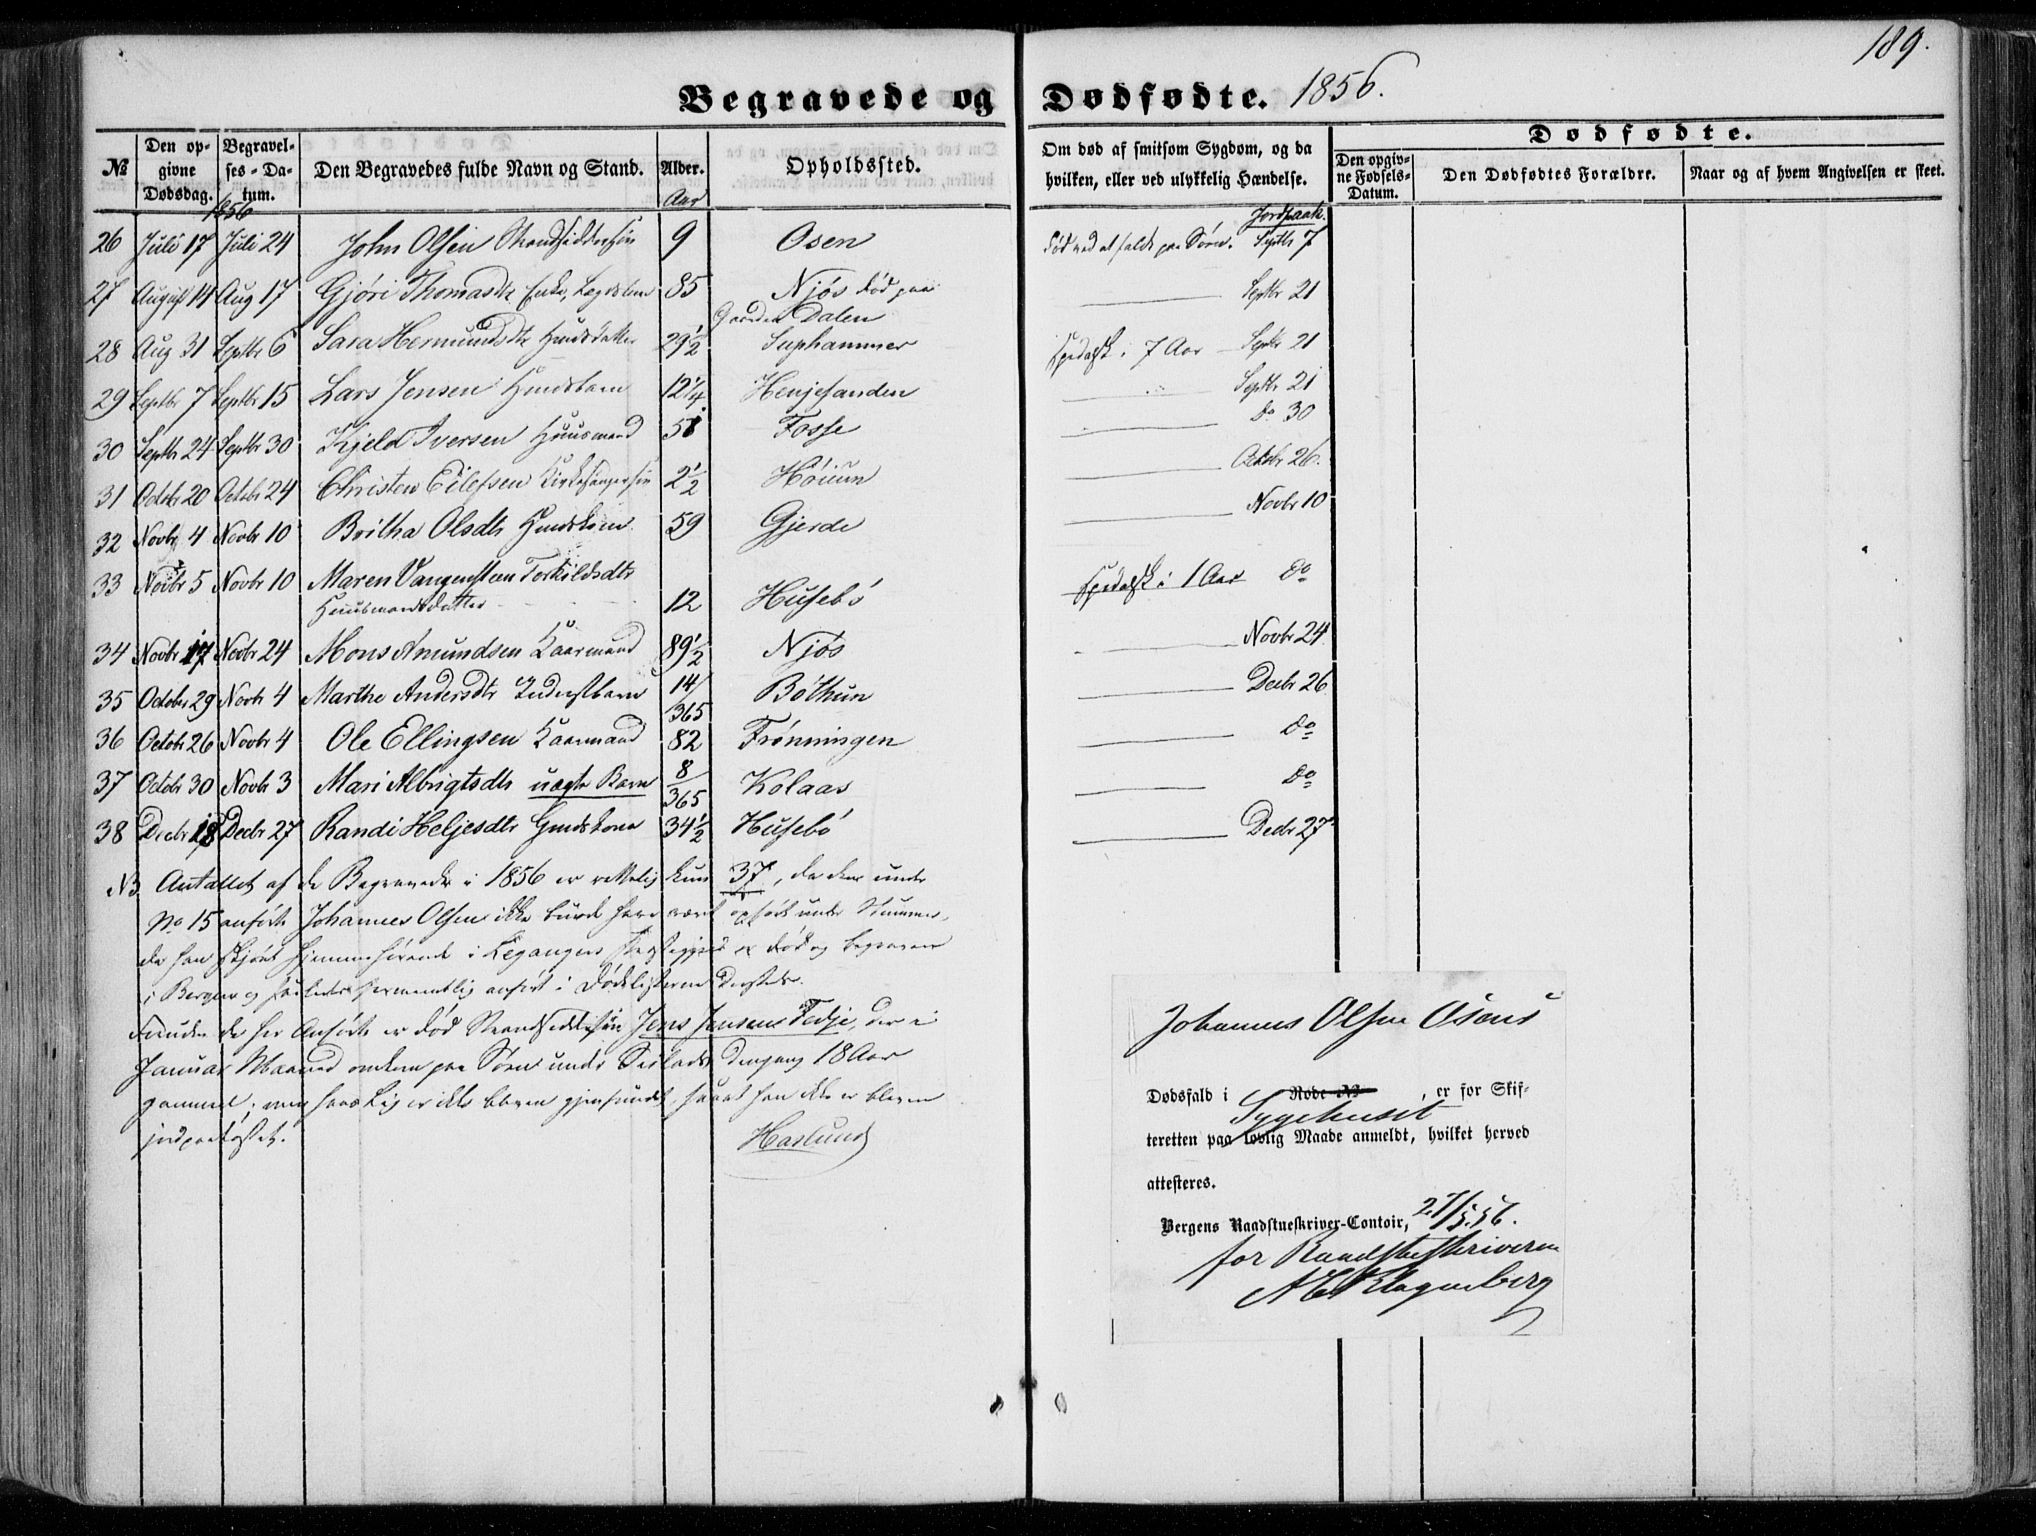 189.
Begravede og Dødfødte. 1856.
№ Den opgivne Dødsdag. Begravelses-Datum. Den Begravedes fulde Navn og Stand. Alder. Opholdssted. Om død af smitsom Sygdom, og da hvilken, eller ved ulykkelig Hændelse. Dødfødte.
Den opgivne Fødsels-Datum. Den Dødfødtes Forældre. Naar og af hvem Angivelsen er skeet.
1856 Aar Jordpaak.
26 Juli 17 Juli 24 John Olsen Strandsiddersøn 9 Osen død ved at falde paa Søen. Septbr 7
27 August 14 Aug 17 Gjøri Thomasdtr Enke, Lægdslem 85 Njøs død paa Gaarden Dalen Septbr 21
28 Aug 31 Septbr 6 Sara Hermundsdtr Huusdatter 29½ Suphammer Spedalsk i 7 Aar Septbr 21
29 Septbr 7 Septbr 15 Lars Jensen 12¼ Henjesanden Septbr 21
30 Septbr 24 Septbr 30 Kjeld Iversen Huusmand 58 Fosse do 30
31 Octobr 20 Octobr 24 Christen Eilefsen Kirkesangersøn 2½ Høium Octobr 26.
32 Novbr 4 Novbr 10 Britha Olsdtr 59 Gjerde Novbr 10
33 Novbr 5 Novbr 10 Maren Vangensteen Torkildsdtr
Huusmandsdatter 12 Husebø Spedalsk i 1 Aar do
34 Novbr 17 Novbr 24 Mons Amundsen Kaarmand 89½ Njøs Novbr 24
35 October 29 Novbr 4 Marthe Andersdtr Inderstbarn 14/365 Bøthun Decbr 26
36 Octobr 26 Novbr 4 Ole Ellingsen Kaarmand 82 Frønningen do
37 Octobr 30 Novbr 3 Mari Albrigtsdtr uægte Barn 8/365 Kolaas do
38 Decbr 18 Decbr 27 Randi Heljesdtr 34½ Husebø Decbr 27
NB Antallet af de Begravede i 1856 er rettelig kun 37, da den under
No 15 anførte Johannes Olsen ikke burde have været opført under Nummer,
da han skjønt hjemmehørende i Leganger Præstegjeld er død og begraven
i Bergen og saaledes formentlig anført i Dødslisterne
Foruden de her Anførte er død Strandsiddersøn Jens Jensen Tedje, der i
Januar Maaned omkom paa Søen under Sildefiske 18 Aar
gammel; men hans Lig er ikke bleven gjenfundet, saa at han ikke er bleven
jordpaakastet.
Haslund
Johannes Olsen Osens
Dødsfald i Rode № Sygehuset, er for Skif-
teretten paa lovlig Maade anmeldt, hvilket herved
attesteres.
Bergens Raadstueskriver-Contoir, 27/5 56.
for Raadstueskriveren
Klagenberg